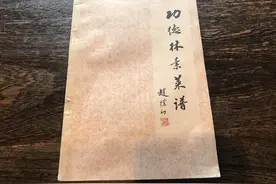 功德林素菜谱
赵朴初